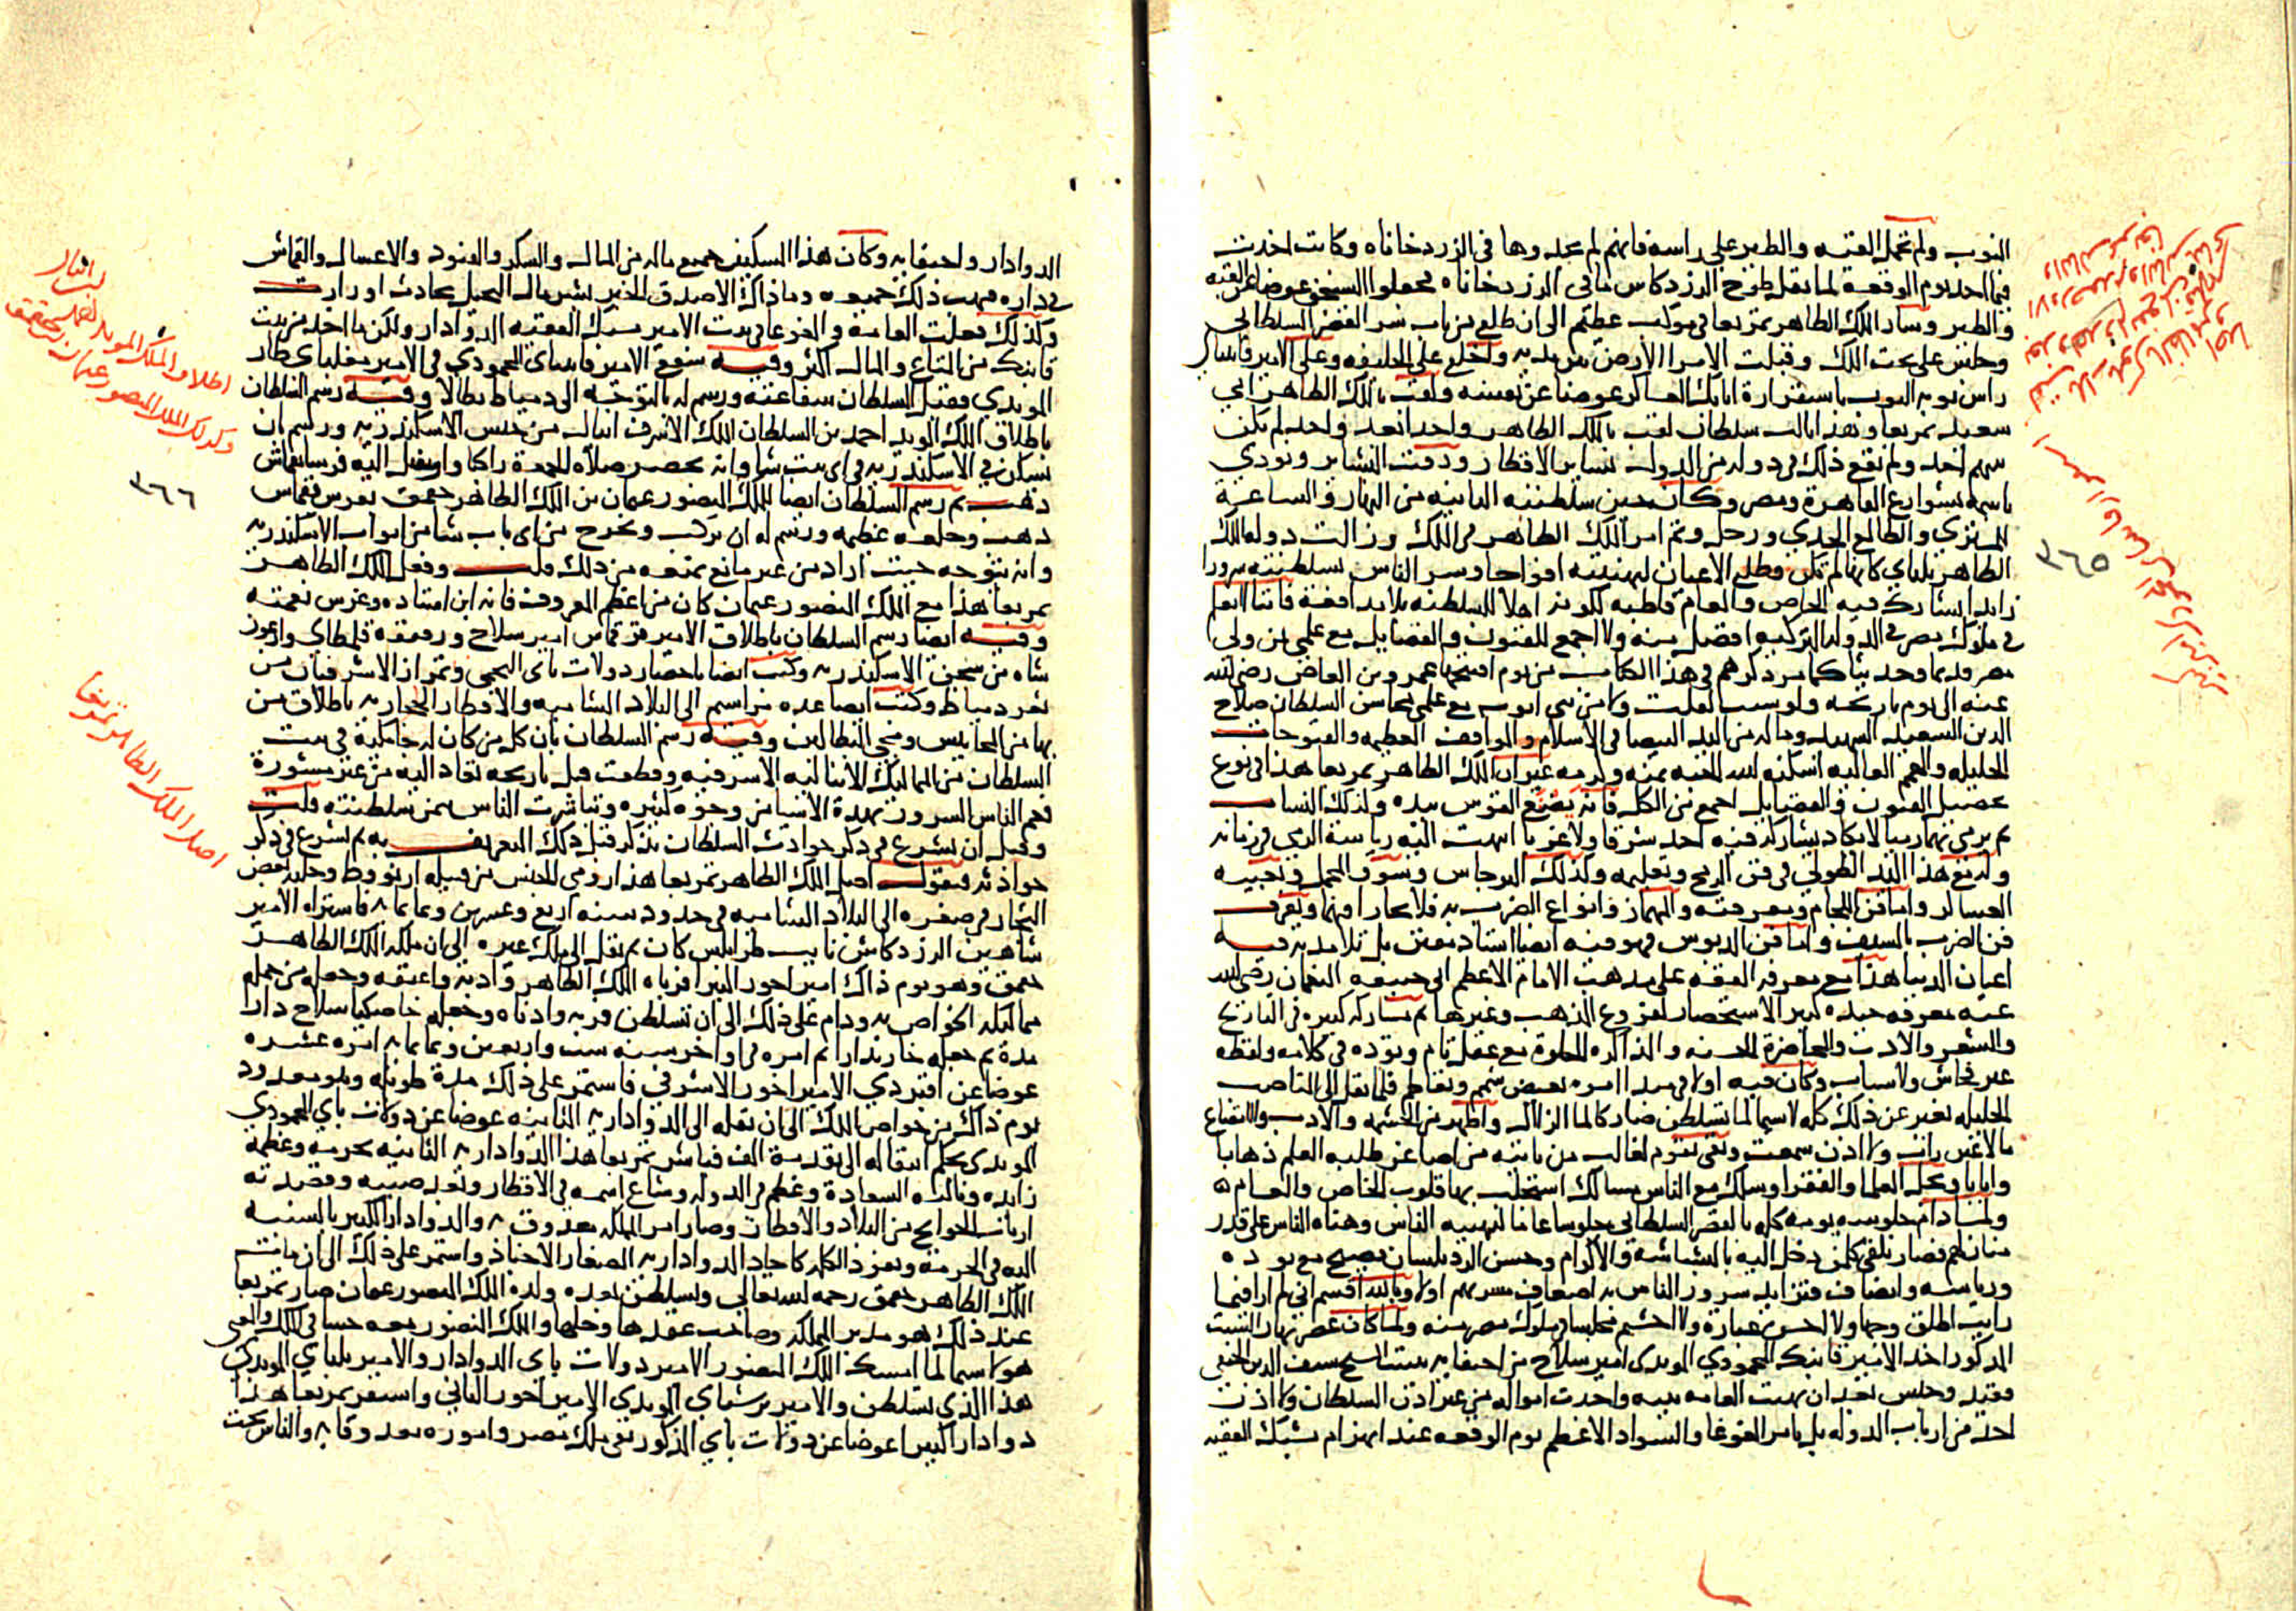 النوب ولم تحمل القبه والطير على راسه فانهم لم يجدوها في الزردخاناه وكانت اخذت
فيما اخذ يوم الوقعة لما نقل طوخ الزردكاش ما في الزردخاناه فجعلوا السنجق عوضا عن القبه
والطير وسار الملك الظاهر تمربغا في موكب عظيم الى ان طلع من باب سر القصر السلطاني
وجلس على تخت الملك وقبلت الامرا الارض بين يديه واخلع على الخليفه وعلى الامير قايتباي
راس نوبه النوب باستقراره اتابك العساكر عوضا عن نفسه ولقب بالملك الظاهر ابي
سعيد تمربغا وهذا ثالث سلطان لقب بالملك الظاهر واحدا بعد واحد لم يكن
بينهم احد ولم يقع ذلك في دوله من الدول بساير الاقطار ودقت البشاير ونودي
باسمه بشوارع القاهرة ومصر وكان حين سلطنته الثانيه من النهار والساعة
للمشتري والطالع الجدي وزحل وتم امر الملك الظاهر في الملك وزالت دولة الملك
الظاهر يلباي كانها لم تكن وطلع الاعيان لتهنيته افواجا وسر الناس بسلطنته سرورا
زايدا يشارك فيه الخاص والعام قاطبه لكونه اهلا للسلطنه بلا مدافعة فاننا لا نعلم
في ملوك مصر في الدوله التركيه افضل منه ولا اجمع للفنون والفضايل مع علمي بمن ولي
مصر قديما وحديثا كما مر ذكرهم في هذا الكتاب من يوم افتتحها عمرو بن العاص رضي الله
عنه الى يوم تاريخه ولو شيت لقلت ولا من بني ايوب مع علمي بمحاسن السلطان صلاح
الدين السعيد الشهيد وما له من اليد البيضا في الاسلام والمواقف العظيمه والفتوحات
الجليله والهمم العاليه اسكنه الله الجنه بمنه وكرمه غير ان الملك الظاهر تمربغا هذا في نوع
تحصيل الفنون والفضايل اجمع من الكل فانه يصنع القوس بيده وكذلك النشاب
ثم يرمي بهما رميا لا يكاد يشاركه فيه احد شرقا ولا غربا انتهت اليه رياسة الرمي في زمانه
وله مع هذا اليد الطولى في فن الرمح وتعليمه وكذلك البرجاس وسوق المحمل وتعبيه
العساكر واما فن اللجام ومعرفته والمهماز وانواع الضرب به فلا يجارا فيهما ويعرف
فن الضرب بالسيف واما فن الدبوس فهو فيه ايضا استاذ مفنن بل تلامذته فيه
اعيان الدنيا هذا مع معرفه الفقه على مذهب الامام الاعظم ابي حنيفه النعمان رضي الله
عنه معرفه جيده كثير الاستحضار لفروع المذهب وغيرها ثم مشاركه كبيره في التاريخ
والشعر والادب والمحاضرة الحسنه والمذاكره الحلوة مع عقل تام وتؤده في كلامه ولفظه
غير فحاش ولا سباب وكان فيه اولا في مبدا امره بعض شمم وتعاظم فلما نقل الى المناصب
الجليله تغير عن ذلك كله لا سيما لما تسلطن صار كالما الزلال واظهر من الحشمه والادب والاتضاع
ما لا عين رات ولا اذن سمعت وبقي يقوم لغالب من ياتيه من اصاغر طلبه العلم ذهابا
وايابا ويجل العلما والفقرا وسلك مع الناس مسالك استجلب بها قلوب الخاص والعام
ولما دام جلوسه يومه كله بالقصر السلطاني جلوسا عاما لتهنيه الناس وهناه الناس على قدر
منازلهم فصار يلقى كل من دخل اليه بالبشاشه والاكرام وحسن الرد بلسان فصيح مع تؤده
ورياسه وانصاف فتزايد سرور الناس به اضعاف مسرتهم اولا وبالله اقسم اني لم ار فيما
رايت اطلق وجها ولا احسن عبارة ولا احشم مجلسا في ملوك مصر منه ولما كان عصر نهار السبت
المذكور اخذ الامير قانبك المحمودي المويدي امير سلاح من اختفايه ببيت الشيخ سيف الدين الحنفي
فقيد وحبس بعد ان نهبت العامه بيته واخذت امواله من غير اذن السلطان ولا اذن
احد من ارباب الدوله بل بامر الغوغا والسواد الاعظم يوم الوقعه عند انهزام يشبك الفقيه
٣٦٥
الدوادار واختفايه وكان هذا المسكين جميع ماله من المال والسكر والقنود والاعسال والقماش
في داره فنهب ذلك جميعه وما ذاك الا صدق الخبر بشر مال البخيل بحادث او وارث
وكذلك فعلت العامه والغوغا في بيت الامير يشبك الفقيه الدوادار ولكن ما اخذ من بيت
قانبك من المتاع والمال اكثر وفيه شفع الامير قايتباي المحمودي في الامير مغلباي طاز
المويدي فقبل السلطان شفاعته ورسم له بالتوجه الى دمياط بطالا وفيه رسم السلطان
باطلاق الملك المويد احمد بن السلطان الملك الاشرف اينال من حبس الاسكندريه ورسم ان
يسكن في الاسكندريه في اي بيت شا وانه يحضر صلاة الجمعة راكبا وارسل اليه فرسا بقماش
ذهب ثم رسم السلطان ايضا للملك المنصور عثمان بن الملك الظاهر جقمق بفرس بقماش
ذهب وخلعه عظيمه ورسم له ان يركب ويخرج من اي باب شا من ابواب الاسكندريه
وانه يتوجه حيث اراد من غير مانع يمنعه من ذلك قلت وفعل الملك الظاهر
تمربغا هذا مع الملك المنصور عثمان كان من اعظم المعروف فانه ابن استاذه وغرس نعمته
وفيه ايضا رسم السلطان باطلاق الامير قرقماس امير سلاح ورفيقه قلمطاي وارغون
شاه من سجن الاسكندريه وكتب ايضا باحضار دولات باي النجمي وتمراز الاشرفيان من
ثغر دمياط وكتب ايضا عده مراسيم الى البلاد الشاميه والاقطار الحجازيه باطلاق من
بها من المحابيس ومجي البطالين وفيه رسم السلطان بان كل من كان له جامكية في بيت
السلطان من المماليك الايناليه الاشرفيه وقطعت قبل تاريخه تعاد اليه من غير مشورة
فعم الناس السرور بهذه الاشيا من وجوه كثيره وتباشرت الناس بيمن سلطنته قلت
وقبل ان نشرع في ذكر حوادث السلطان نذكر قبل ذلك التعريف به ثم نشرع في ذكر
حوادثه فنقول اصل الملك الظاهر تمربغا هذا رومي الجنس من قبيله ارنوط وجلبه بعض
التجار في صغره الى البلاد الشاميه في حدود سنه اربع وعشرين وثمانمايه فاشتراه الامير
شاهين الزردكاش نايب طرابلس كان ثم نقل الى ملك غيره الى ان ملكه الملك الظاهر
جقمق وهو يوم ذاك امير اخور كبير فرباه الملك الظاهر وادبه واعتقه وجعله من جمله
مماليكه الخواص به ودام على ذلك الى ان تسلطن فقربه وادناه وجعله خاصكيا سلاح دارا
مدة ثم جعله خازندارا ثم امره في اواخر سنه ست واربعين وثمانمايه امره عشره
عوضا عن اقبردي الامير اخور الاشرفي فاستمر على ذلك مدة طويله وهو معدود
يوم ذاك من خواص الملك الى ان نقله الى الدوادارية الثانيه عوضا عن دولات باي المحمودي
المويدي بحكم انتقاله الى تقدمة الف فباشر تمربغا هذا الدوادارية الثانيه بحرمه وعظمة
زايده ونالته السعادة وعظم في الدوله وشاع اسمه في الاقطار وبعد صيته وقصدته
ارباب الحوايج من البلاد والاقطار وصار امر المملكه معذوقا به والدوادار الكبير بالنسبه
اليه في الحرمه ونفوذ الكلمه كاحاد الدواداريه الصغار الاجناد واستمر على ذلك الى ان مات
الملك الظاهر جقمق رحمه الله تعالى وتسلطن بعده ولده الملك المنصور عثمان صار تمربغا
عند ذلك هو مدبر المملكه وصاحب عقدها وحلها والملك المنصور معه حسا في الملك والمعنى
هو لا سيما لما امسك الملك المنصور الامير دولات باي الدوادار والامير يلباي المويدي
هذا الذي تسلطن والامير برشباي المويدي الامير اخور الثاني واستقر تمربغا هذا
دوادارا كبيرا عوضا عن دولات باي المذكور بقي ملك مصر واموره معذوقا به والناس تحت
اطلاق الملك المويد احمد
وكذلك الملك المنصور عثمان بن جقمق
٣٦٦
اصل الملك الظاهر تمربغا